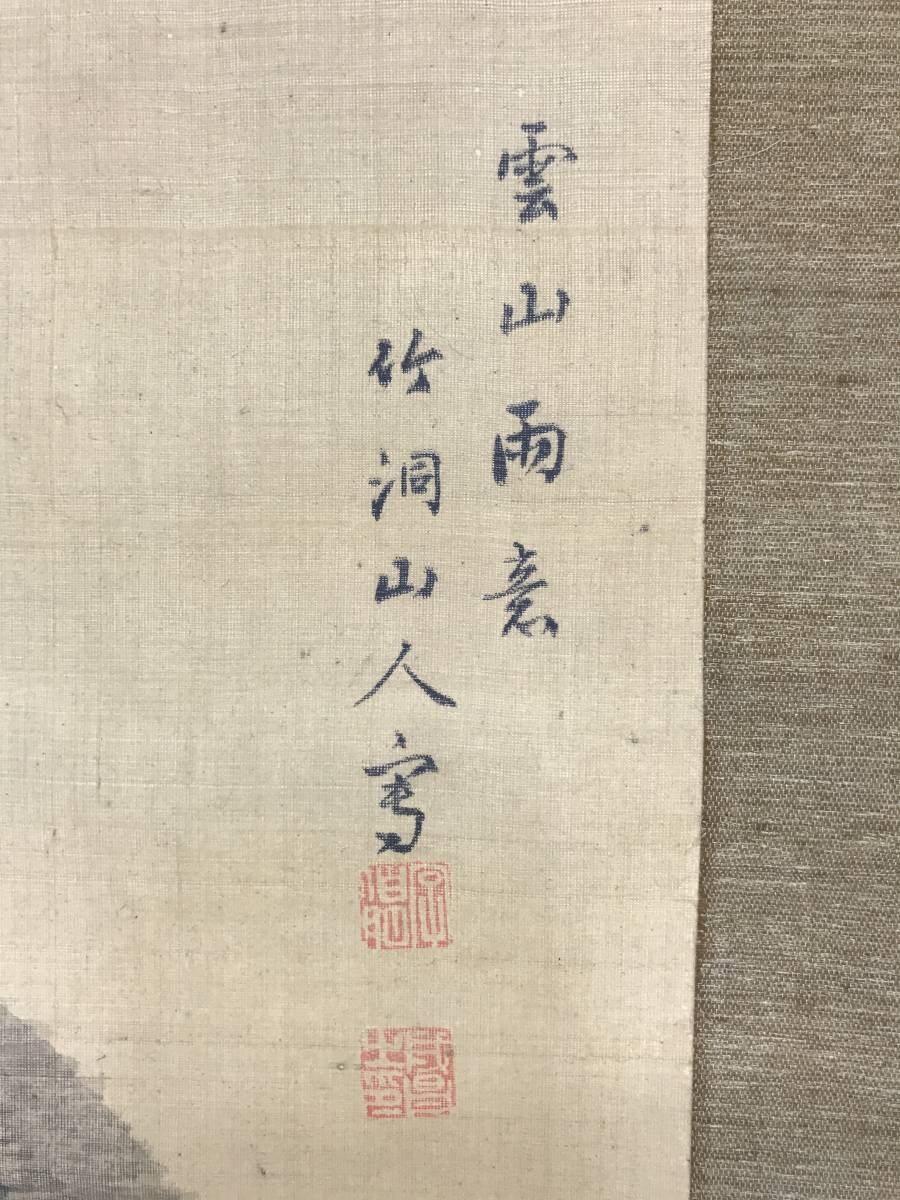 雲山雨意
竹洞山人寫